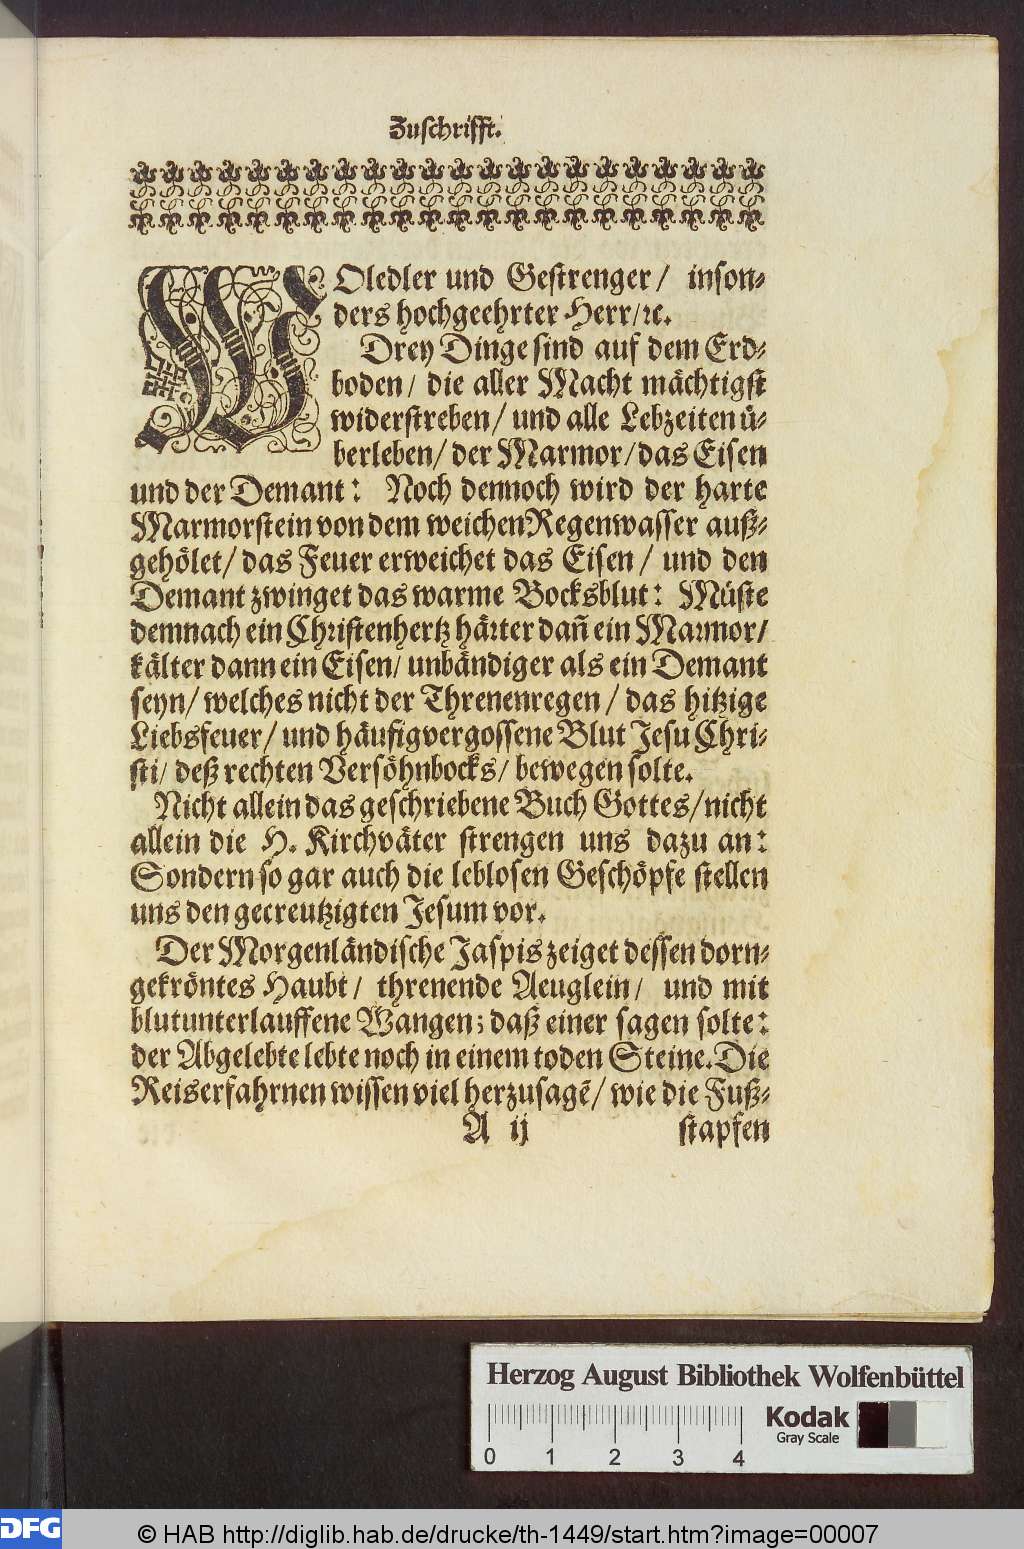 Zuschrifft.
WOledler und Gestrenger/ inson-
ders hochgeehrter Herr/ ꝛc.
Drey Dinge sind auf dem Erd-
boden/ die aller Macht mächtigst
widerstreben/ und alle Lebzeiten ü-
berleben/ der Marmor/ das Eisen
und der Demant: Noch dennoch wird der harte
Marmorstein von dem weichen Regenwasser auß-
gehölet/ das Feuer erweichet das Eisen/ und den
Demant zwinget das warme Bocksblut: Müste
demnach ein Christenhertz härter dañ ein Marmor/
kälter dann ein Eisen/ unbändiger als ein Demant
seyn/ welches nicht der Threnenregen/ das hitzige
Liebsfeuer/ und häufigvergossene Blut Jesu Chri-
sti/ deß rechten Versöhnbocks/ bewegen solte.
Nicht allein das geschriebene Buch Gottes/ nicht
allein die H. Kirchväter strengen uns dazu an:
Sondern so gar auch die leblosen Geschöpfe stellen
uns den gecreutzigten Jesum vor.
Der Morgenländische Jaspis zeiget dessen dorn-
gekröntes Haubt/ threnende Aeuglein/ und mit
blutunterlauffene Wangen; daß einer sagen solte:
der Abgelebte lebte noch in einem toden Steine. Die
Reiserfahrnen wissen viel herzusagẽ/ wie die Fuß-
A ij stapfen
Herzog August Bibliothek Wolfenbüttel
0 1 2 3 4
Kodak
Gray Scale
DFG © HAB http://diglib.hab.de/drucke/th-1449/start.htm?image=00007